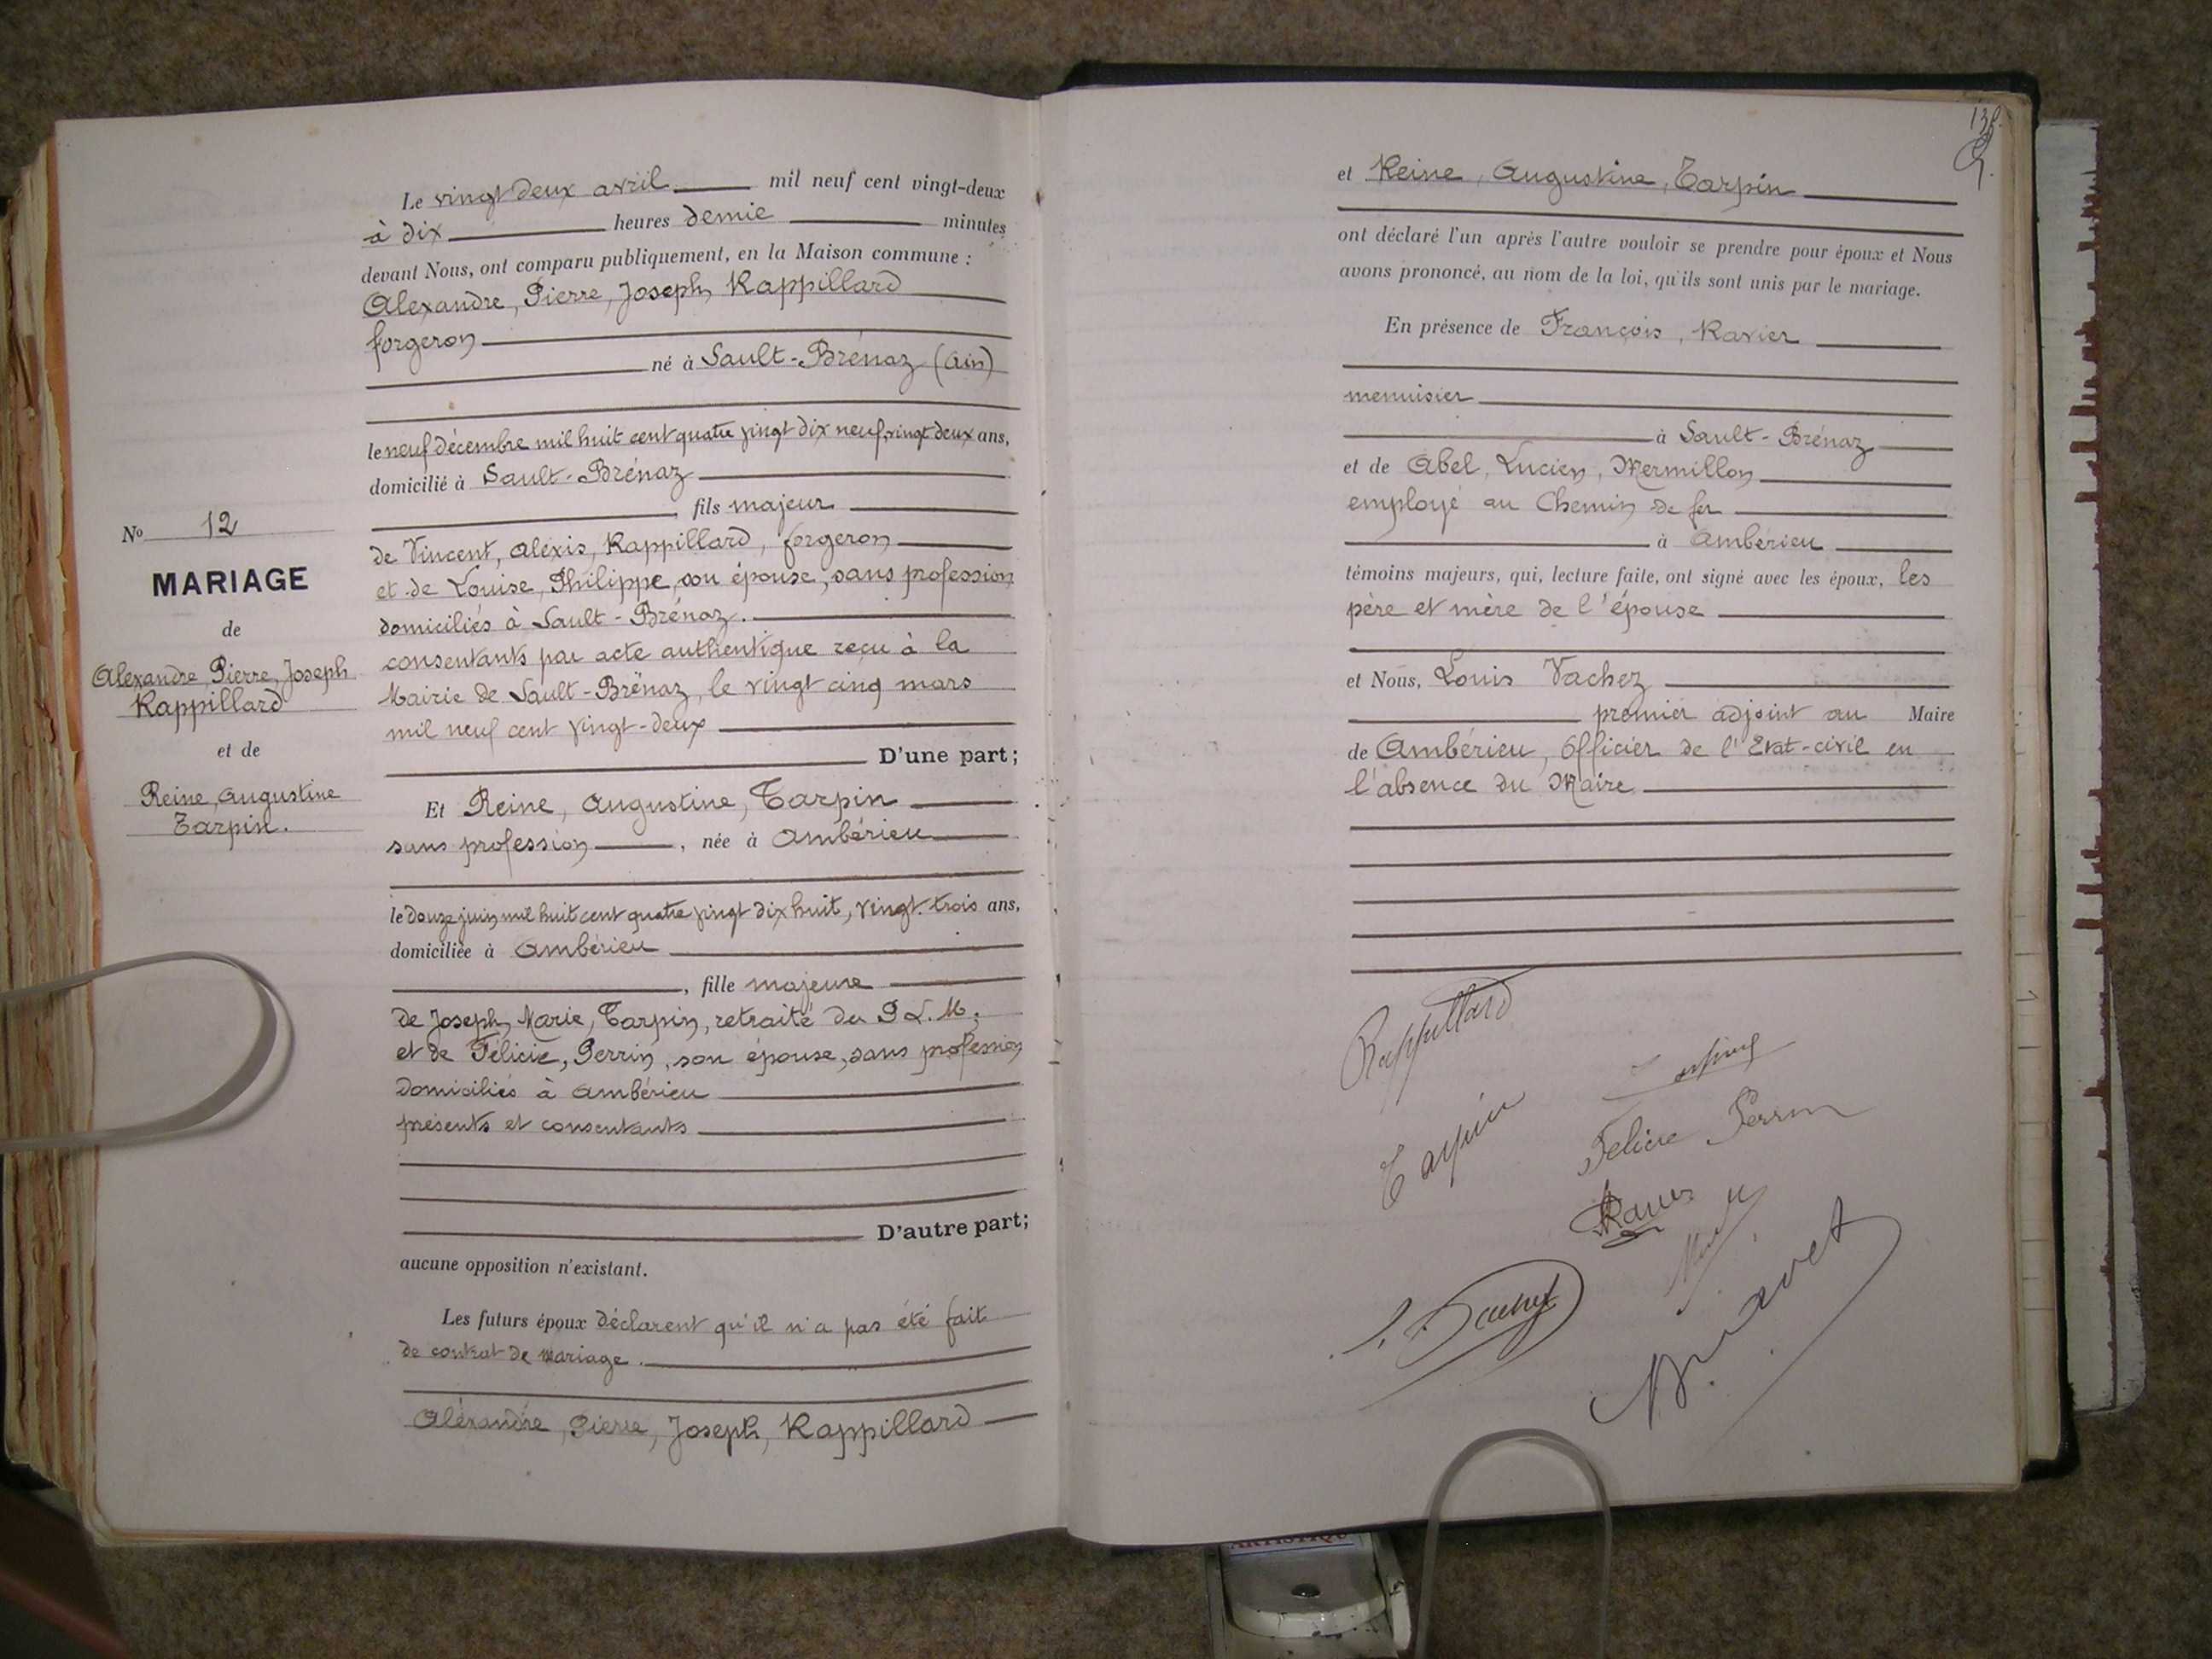 Le vingt deux avril mil neuf cent vingt-deux
à dix heures demie minutes
devant Nous, ont comparu publiquement, en la Maison commune :
Alexandre, Pierre, Joseph Rappillard
forgeron
né à Sault-Brénaz (Ain)
le neuf décembre mil huit cent quatre vingt dix neuf, vingt deux ans,
domicilié à Sault-Brénaz
fils majeur
de Vincent, Alexis, Rappillard, forgeron
et de Louise, Philippe, son épouse, sans profession
domiciliés à Sault-Brénaz.
consentants par acte authentique reçu à la
Mairie de Sault-Brénaz, le vingt cinq mars
mil neuf cent vingt-deux
D'une part;
Et Reine, Augustine, Tarpin
sans profession, née à Ambérieu
le douze juin mil huit cent quatre vingt dix huit, vingt-trois ans,
domiciliée à Ambérieu
, fille majeure
de Joseph, Marie, Tarpin, retraité du P.L.M.
et de Félicie, Perrin, son épouse, sans profession
domiciliés à Ambérieu
présents et consentants
D'autre part;
aucune opposition n'existant.
Les futurs époux déclarent qu'il n'a pas été fait
de contrat de mariage.
Alexandre, Pierre, Joseph, Rappillard
No 12
MARIAGE
de
Alexandre, Pierre, Joseph
Rappillard
et de
Reine, Augustine
Tarpin.
et Reine, Augustine, Tarpin
ont déclaré l'un après l'autre vouloir se prendre pour époux et Nous
avons prononcé, au nom de la loi, qu'ils sont unis par le mariage.
En présence de François, Ravier
menuisier
à Sault-Brénaz
et de Abel, Lucien, Mermillon
employé au Chemin de fer
à Ambérieu
témoins majeurs, qui, lecture faite, ont signé avec les époux, les
père et mère de l'épouse
et Nous, Louis Vachez
premier adjoint au Maire
de Ambérieu, Officier de l'Etat-civil en
l'absence du Maire
Rappillard
Tarpin
Felicie Perrin
Ravier